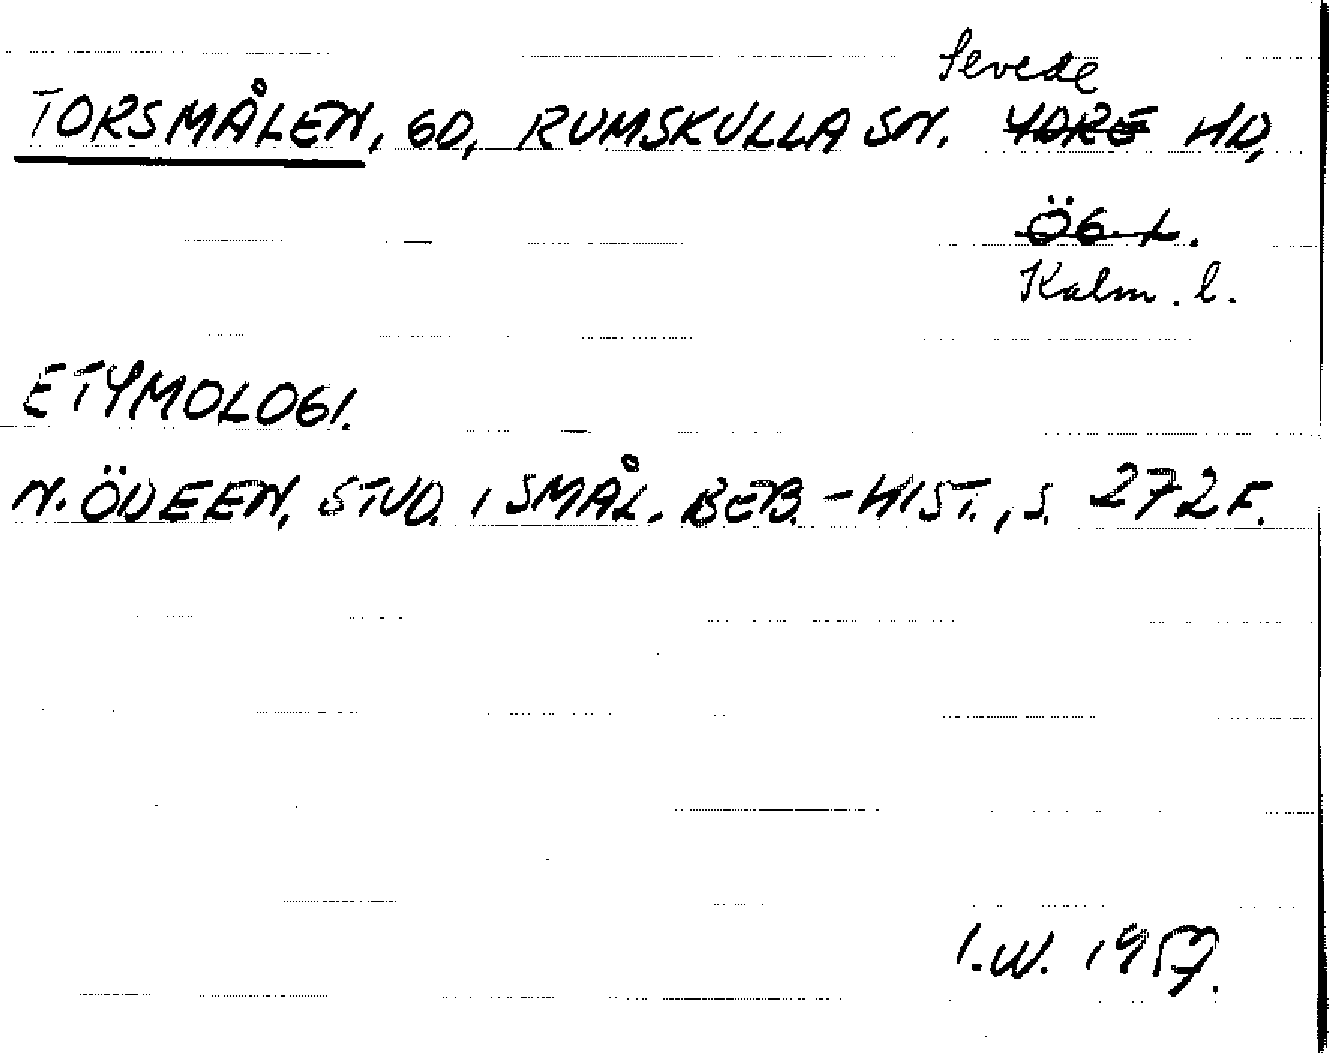 Sevede
TORSMÅLEN, GD, RUMSKULLA SN. YDRE HD,
ÖG L.
Kalm. l.
ETYMOLOGI.
N. ÖDEEN, STUD. I SMÅL. BEB.-HIST., S. 272 F.
I.W. 1957.